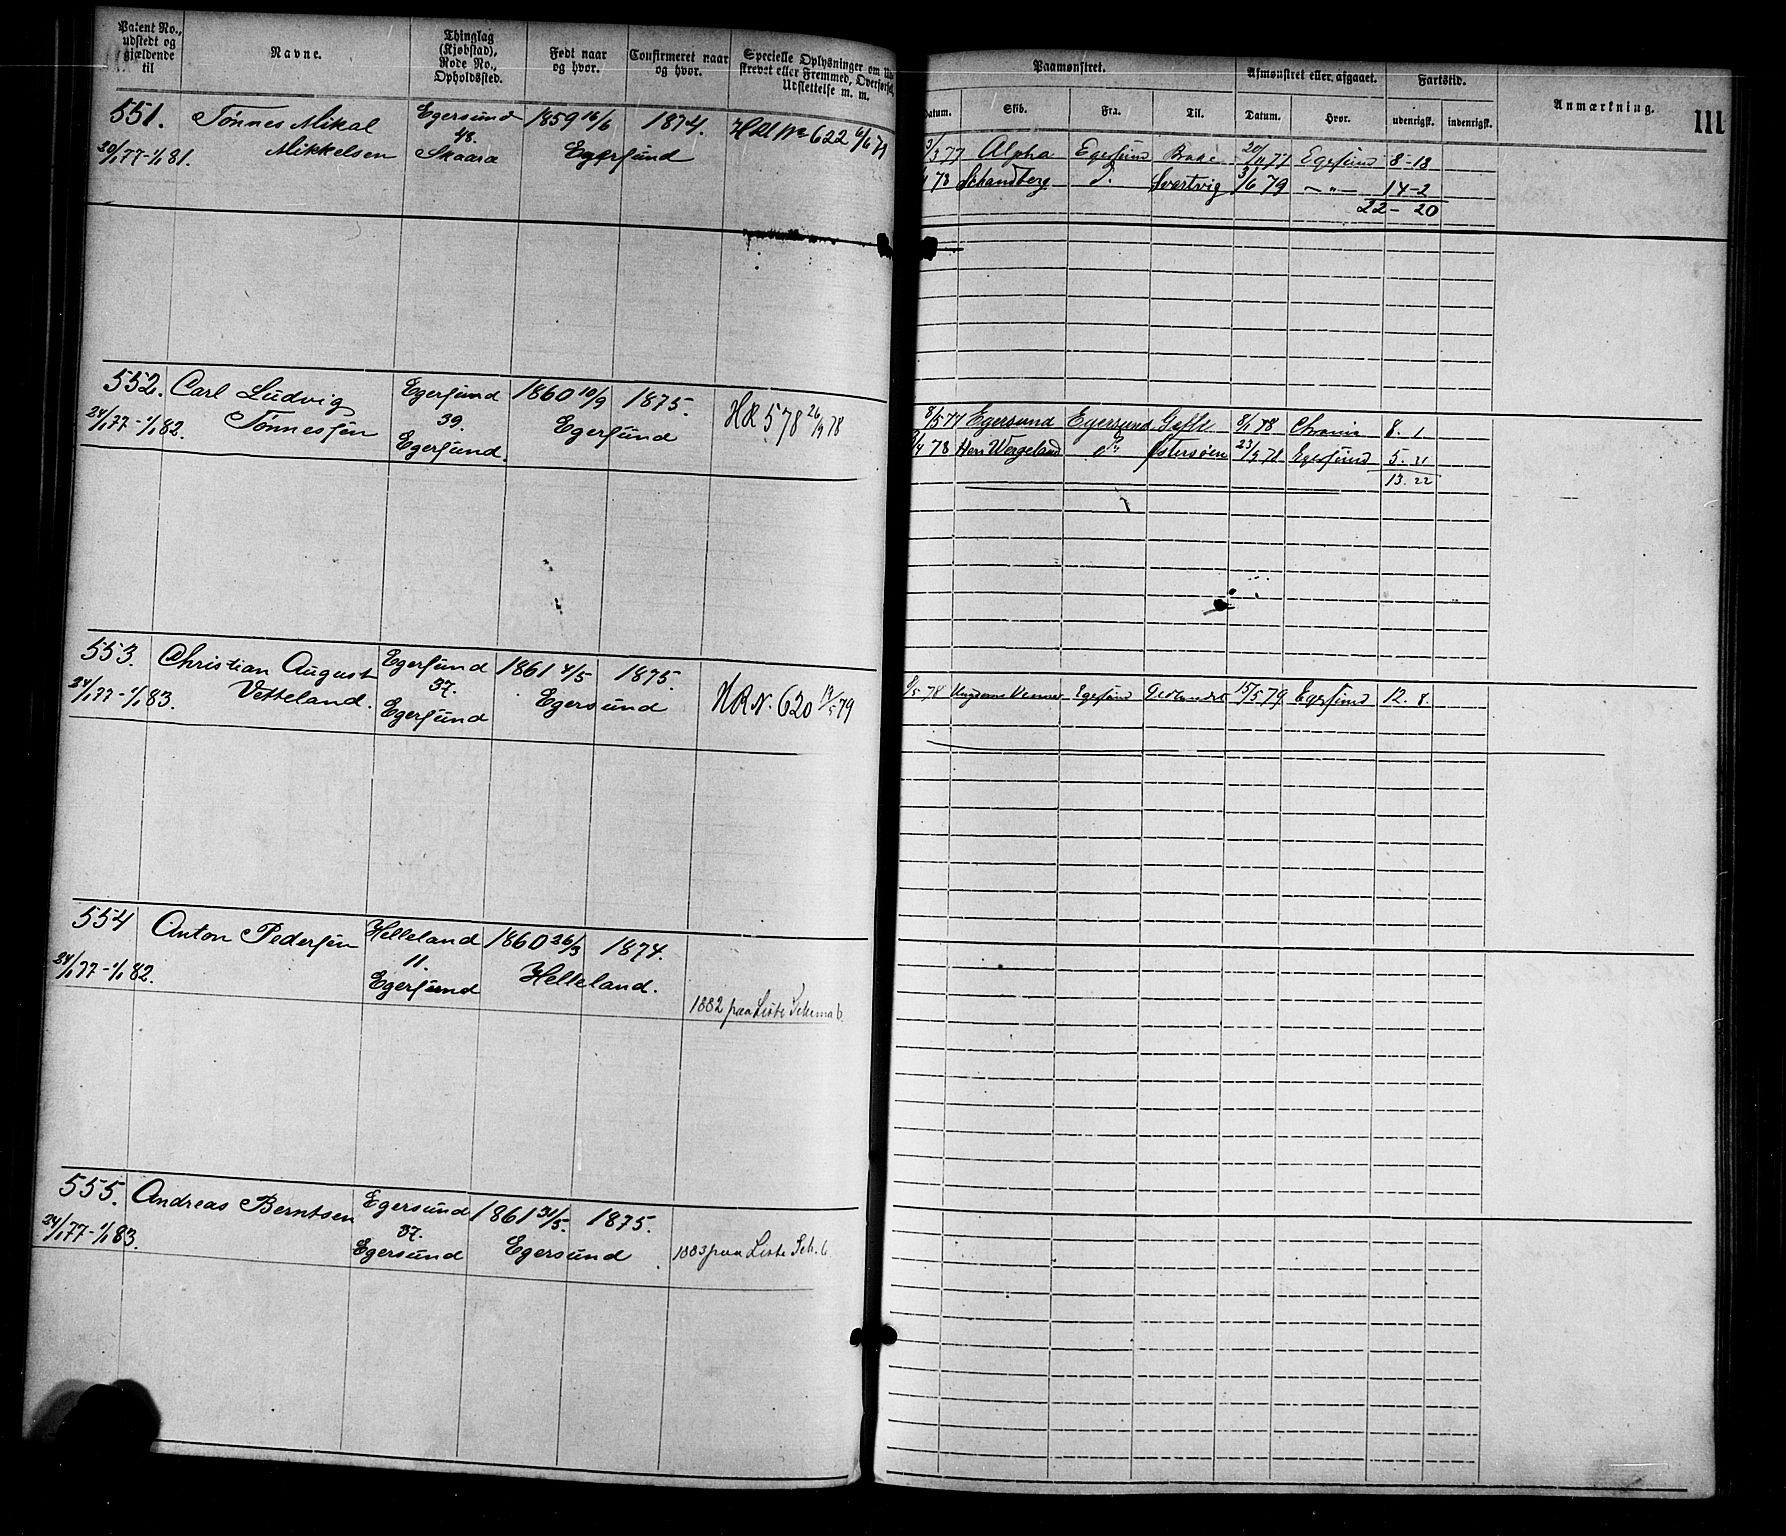 Patent No., udstedt og gjældende til
Navne.
Thinglag (Kjøbstad), Rode No., Opholdssted.
Født naar og hvor.
Confirmeret naar og hvor.
Specielle Oplysninger om
skrevet eller Fremmed, Overførsel,
Udslettelse m. m.
Paamønstret.
Afmønstret eller afgaaet.
Fartstid.
Anmærkning.
111
Datum.
Skib.
Fra.
Til.
Datum.
Hvor.
udenrigsk.
indenrigsk.
551. Tønnes Mikal Egersund 1859 16/6 1874. No 622 6/6 79
48.
20/1 77 - 1/1 81. Mikkelsen Skaara Egersund
/3 77 Alpha Egersund 20/11 77 Egersund 8-18
78 Schandberg d. Svartvig 3/6 79 - " - 14-2
22-20
552. Carl Ludvig Egersund 1860 10/9 1875. HR 578 26/9 78
39.
24/1 77 - 1/1 82. Tønnessen Egersund. Egersund
8/5 77 Egersund Egersund Gefle 8/1 78 8. 1
/4 78 Herr Wergeland do Østersøen 23/9 78 Egersund 5. 21
13. 22
553. Christian August Egersund 1861 4/5 1875.
37.
24/1 77 - 1/1 83. Vetteland. Egersund Egersund HR N. 620 19/5 79
8/5 78 Egersund 15/5 79 Egersund 12. 8.
554 Anton Pedersen Helleland 1860 26/3 1874.
11.
24/1 77 - 1/1 82. Egersund Helleland.
1882 paa Liste Schema 6.
555. Andreas Berntsen Egersund 1861 31/5. 1875.
37.
24/1 77 - 1/1 83. Egersund Egersund 1883 paa Liste Sch. 6